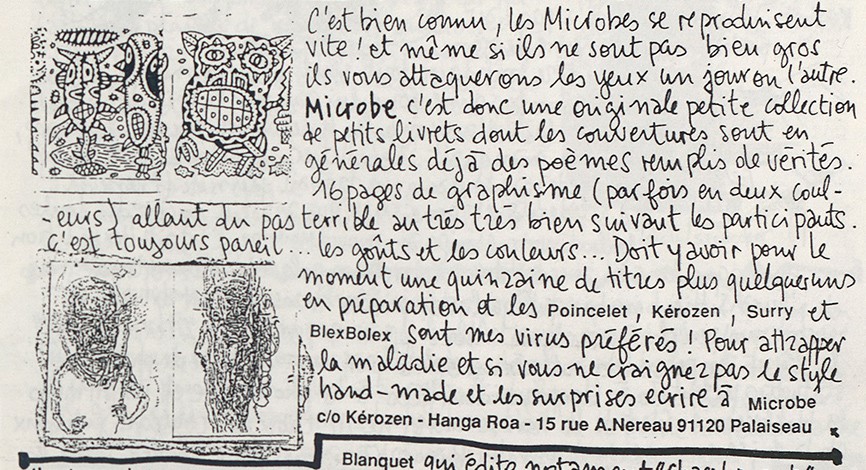 C'est bien connu, les Microbes se reproduisent
vite ! et même si ils ne sont pas bien gros
ils vous attaquerons les yeux un jour ou l'autre.
Microbe c'est donc une originale petite collection
de petits livrets dont les couvertures sont en
générales déjà des poèmes remplis de vérités.
16 pages de graphisme (parfois en deux coul-
-eurs) allant du pas terrible au très très bien suivant les participants.
c'est toujours pareil... les goûts et les couleurs... Doit y avoir pour le
moment une quinzaine de titres plus quelques uns
en préparation et les Poincelet, Kérozen, Surry et
BlexBolex sont mes virus préférés ! Pour attrapper
la maladie et si vous ne craignez pas le style
hand-made et les surprises ecrire à Microbe
c/o Kérozen - Hanga Roa - 15 rue A.Nereau 91120 Palaiseau
Blanquet qui édite notamment